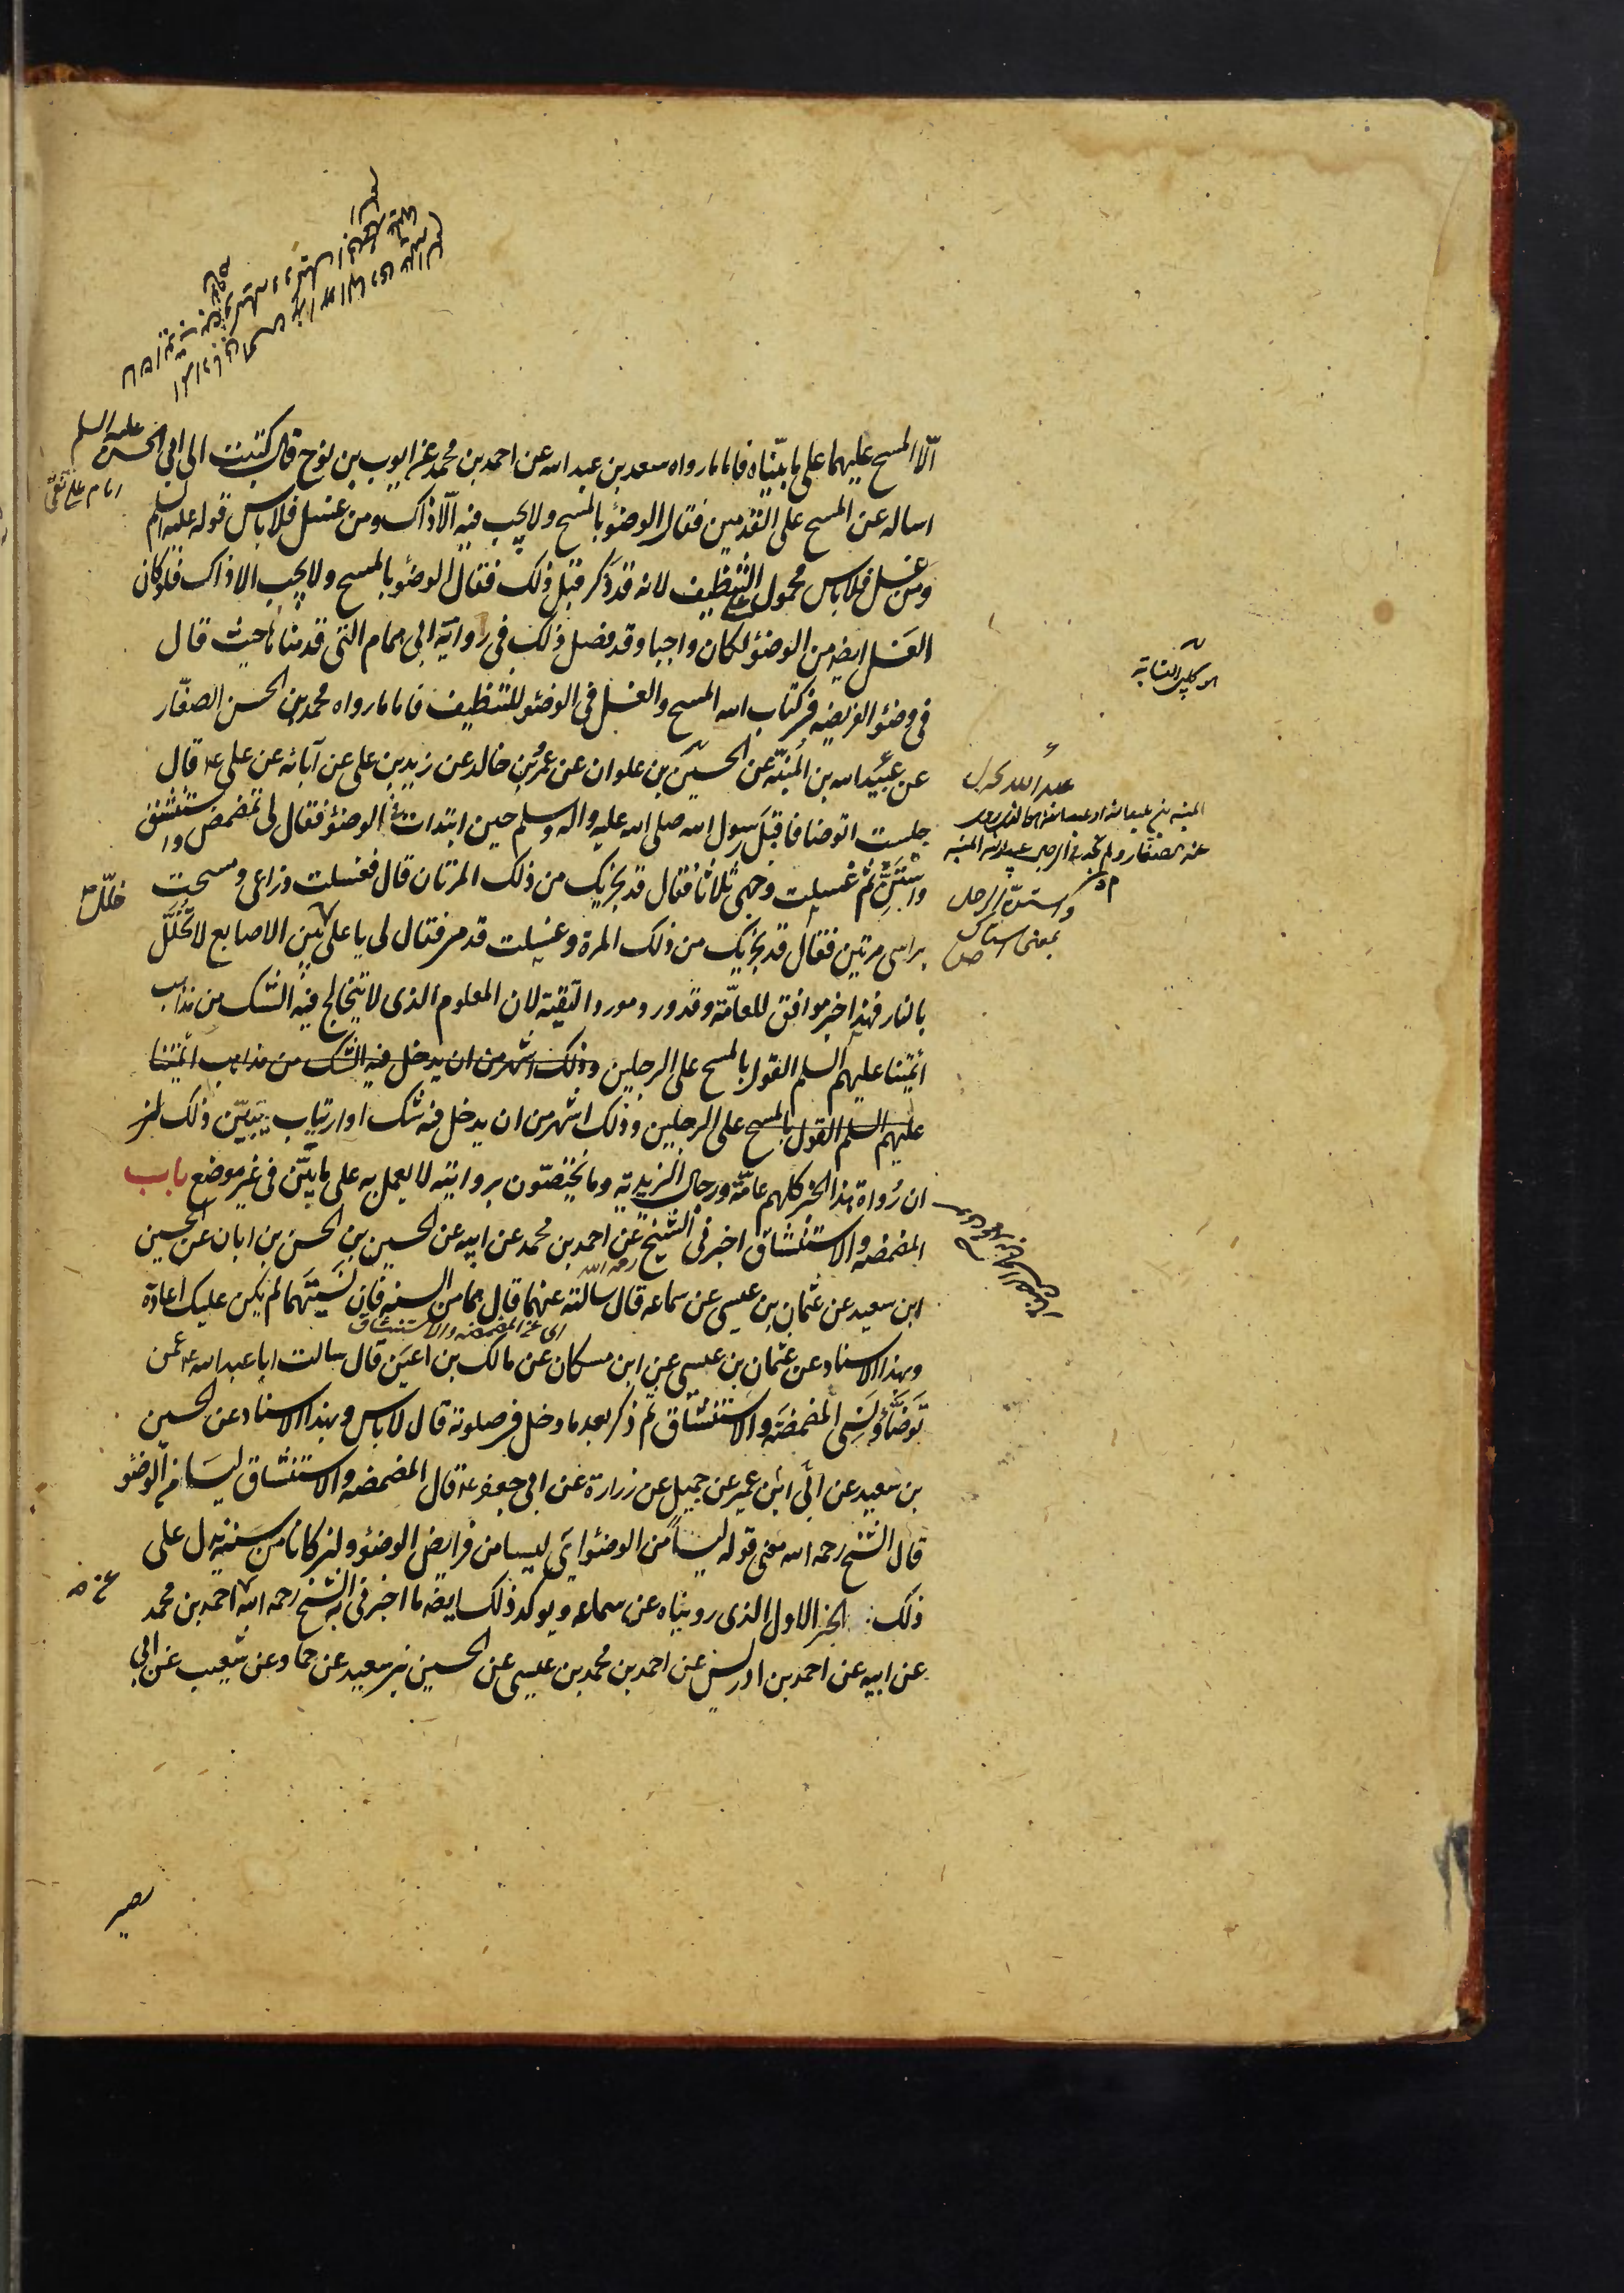 الّا المسح عليهما على ما بيّناه فاما ما رواه سعد بن عبد الله عن احمد بن محمد عن ايوب بن نوح قال كتبت الى ابي الحسن عليه السلم
امام على نقى
اساله عن المسح على القدمين فقال الوضؤ بالمسح ولا يجب فيه الّا ذاك ومن غسل فلا باس قوله عليه السلم
ومن غسل فلا باس محمول على التنظيف لانه قد ذكر قبل ذلك فقال الوضؤ بالمسح ولا يجب الا ذاك فلو كان
الغسل ايضا من الوضؤ لكان واجبا وقد فصل ذلك في رواية ابى همام التى قدمناها حيث قال
في وضؤ الفريضه في كتاب الله المسح والغسل في الوضؤ للتنظيف فاما ما رواه محمد بن الحسن الصفّار
عن عبيد الله بن المنبّه عن الحسين بن علوان عن عمرو بن خالد عن زيد بن على عن آبائه عن على ع قال
جلست اتوضا فاقبل رسول الله صلى الله عليه واله وسلم حين ابتدات في الوضؤ فقال لى تمضمض واستنشق
واستنّ ثم غسلت وجهى ثلاثا فقال قد يجزيك من ذلك المرتان قال فغسلت ذراعى ومسحت
براسى مرتين فقال قد يجزيك من ذلك المرة وغسلت قدمى فقال لى يا على بين الاصابع لا تخلّل
خلّل
بالنار فهذا خبر موافق للعامّة وقد ورد مورد التقية لان المعلوم الذى لا يتخالج فيه الشك من مذاهب
ائمتنا عليهم السلم القول بالمسح على الرجلين وذلك اشهر من ان يدخل فيه الشك من مذاهب ائمتنا
عليهم السلم القول بالمسح على الرجلين وذلك اشهر من ان يدخل فيه شك او ارتياب يتبيّن ذلك
ان رُواة هذا الخبر كلهم عامّة ورجال الزيدية وما يختصّون بروايته لا يعمل به على ما بيّن في غير موضع باب
المضمضه والاستنشاق اخبرنى الشيخ رحمه الله عن احمد بن محمد عن ابيه عن الحسين بن الحسن بن ابان عن الحسين
ابن سعيد عن عثمان بن عيسى عن سماعه قال سالته عنهما قال هما من السنه فان نسيتهما لم يكن عليك اعادة
اى عن المضمضه والاستنشاق
وبهذا الاسناد عن عثمان بن عيسى عن ابن مسكان عن مالك بن اعين قال سالت ابا عبد الله ع عمن
توضّأ ونسى المضمضة والاستنشاق ثم ذكر بعد ما دخل في صلوته قال لا باس وبهذا الاسناد عن الحسين
بن سعيد عن ابى عمير عن جميل عن زرارة عن ابى جعفر ع قال المضمضه والاستنشاق ليسا من الوضؤ
قال الشيخ رحمه الله معنى قوله ليسا من الوضؤ اى ليسا من فرايض الوضؤ وان كانا من سننه يدل على
ذلك الخبر الاول الذى رويناه عن سماعه ويوكد ذلك ايضا ما اخبرنى به الشيخ رحمه الله احمد بن محمد
عن
عن ابيه عن احمد بن ادريس عن احمد بن محمد بن عيسى عن الحسين بن سعيد عن حماد عن شعيب عن ابى
بصير